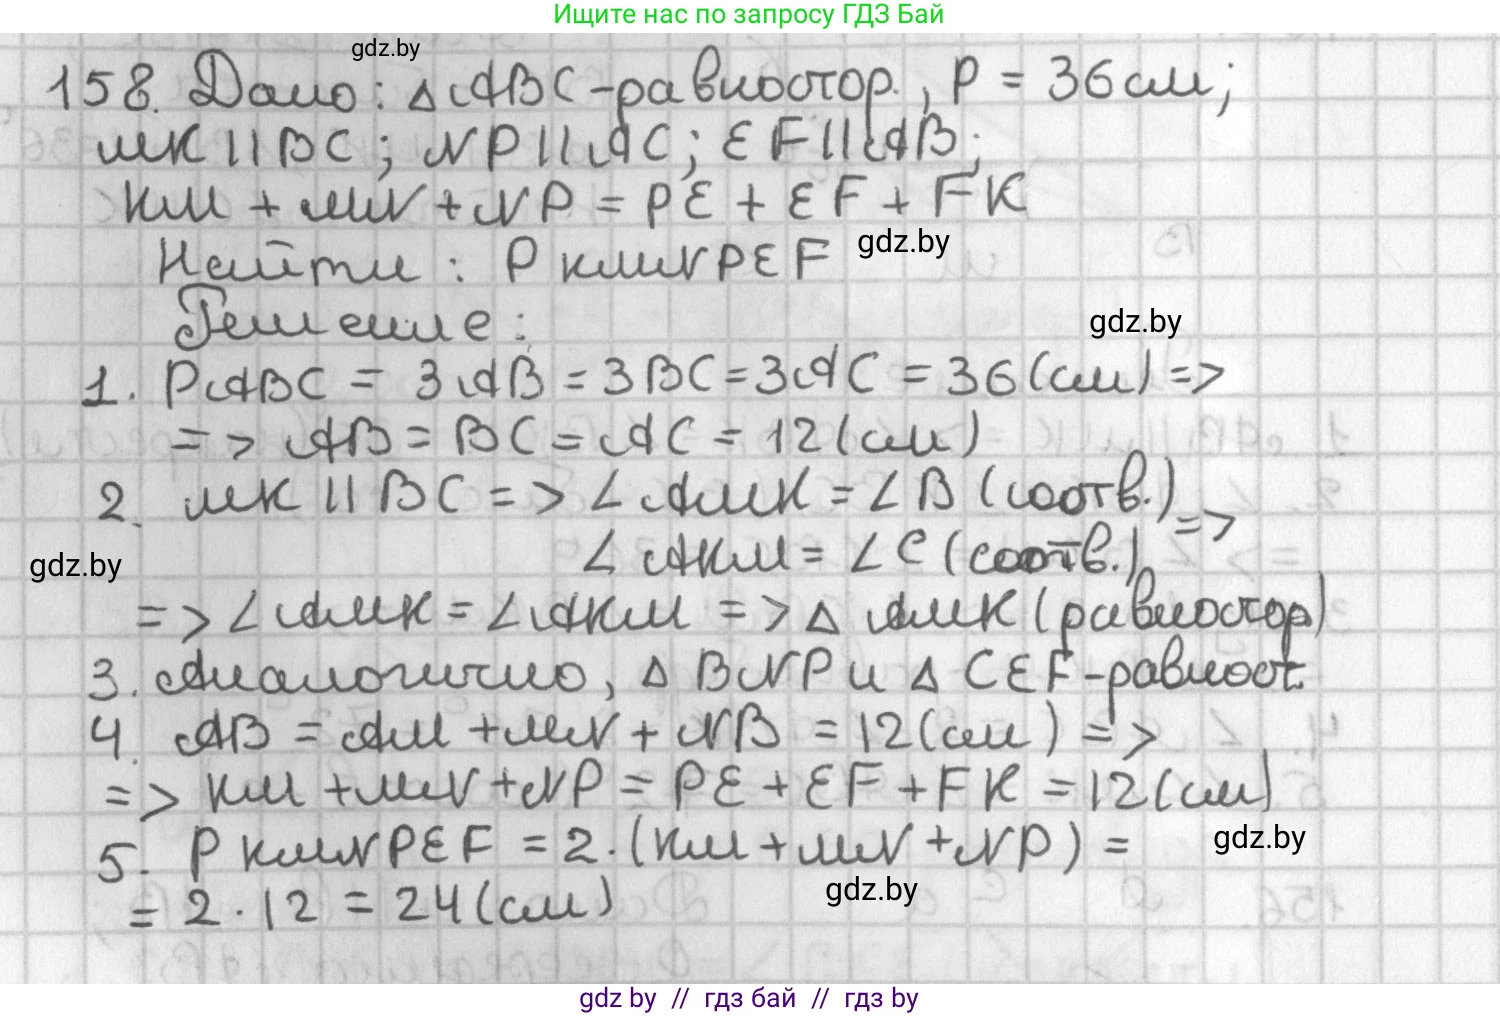 Ищите нас по запросу ГДЗ Бай
gdz.by
158. Дано: △ABC-равностор., P = 36см;
MK || BC; NP || AC; EF || AB;
KM + MN + NP = PE + EF + FK
Найти: P KMNPEF
gdz.by
Решение:
gdz.by
1. PABC = 3AB = 3BC = 3AC = 36(см) =>
=> AB = BC = AC = 12(см)
2. MK || BC => ∠AMK = ∠B (соотв.)
=>
∠AKM = ∠C (соотв.)
gdz.by
=> ∠AMK = ∠AKM => △ AMK (равностор)
3. Аналогично, △ BNP и △ CEF-равност.
4. AB = AM + MN + NB = 12(см) =>
=> KM + MN + NP = PE + EF + FK = 12(см)
gdz.by
5. P KMNPEF = 2·(KM + MN + NP) =
gdz.by
= 2 · 12 = 24(см)
gdz by // гдз бай // гдз by